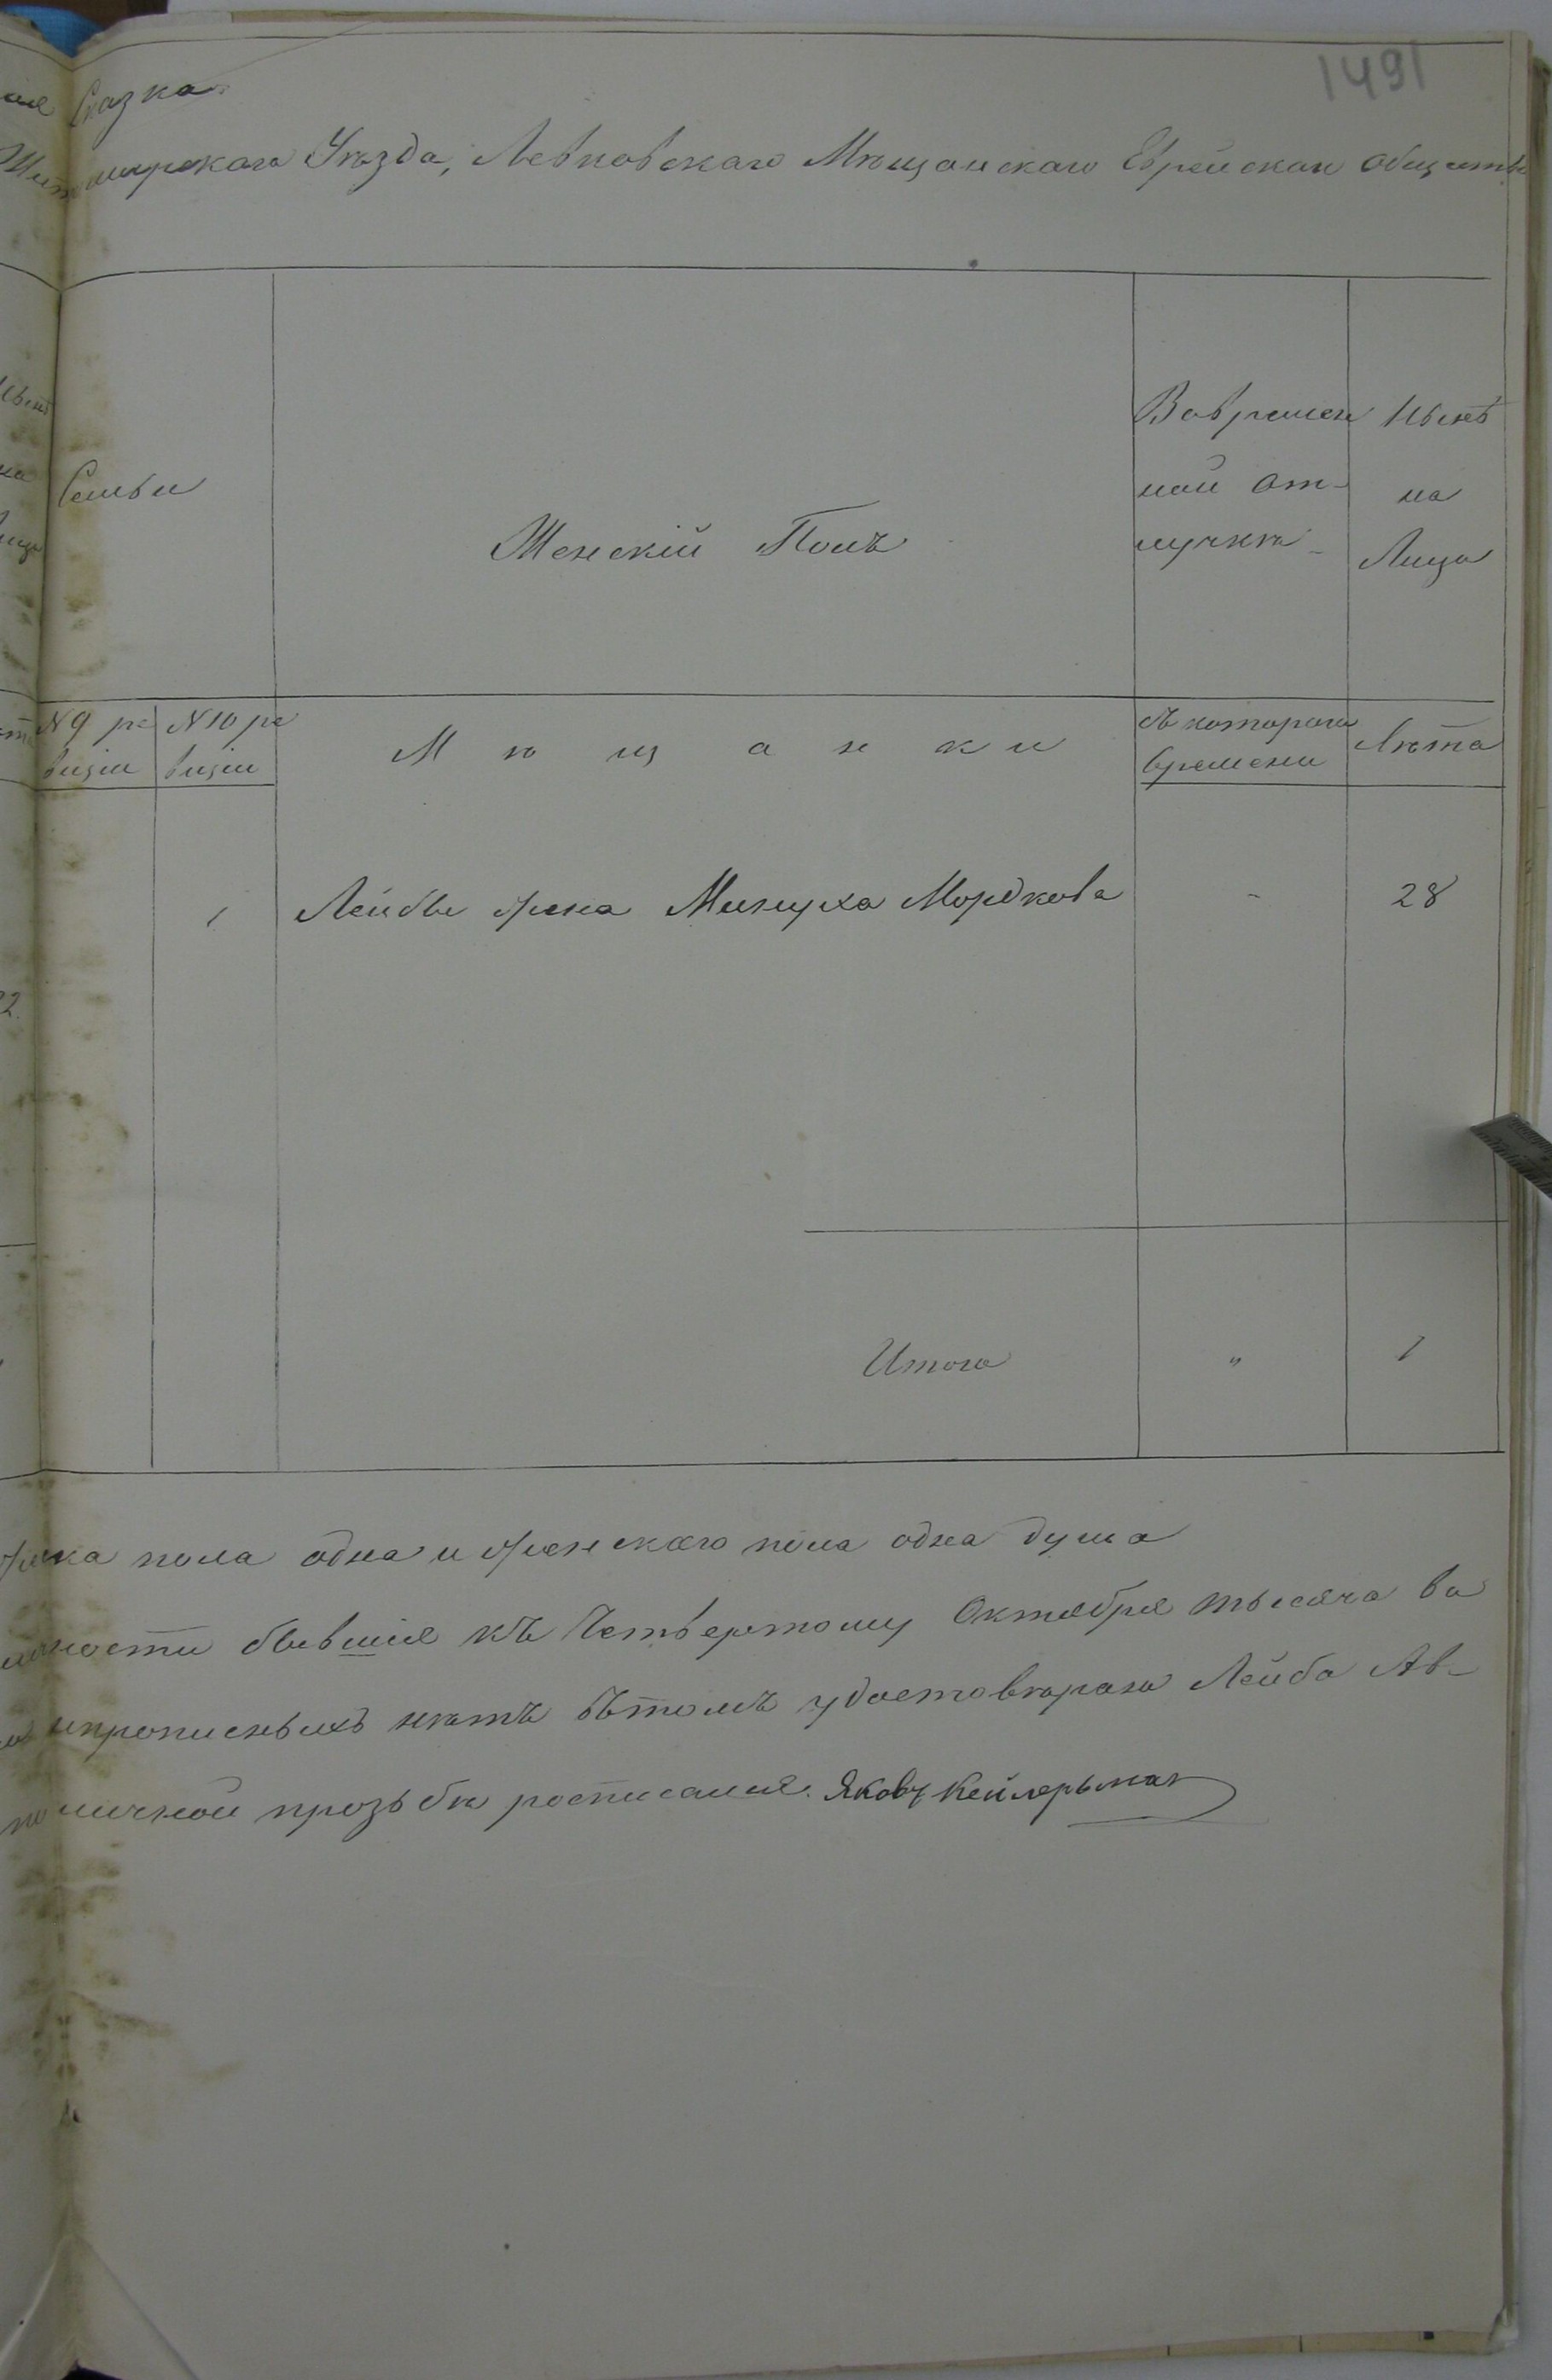 1491
Сказка
Житомирскаго Уѣзда, Левковскаго Мѣщанскаго Еврейскаго Общества
Семьи
Женскій Полъ
Вовремен
ной от-
лучкѣ
Нынѣ
на
Лицо
№ 9 ре
визіи
№ 10 ре
визіи
Мѣщанки
Съ котораго
времени
Лѣта
1 Лейбы жена Минуха Мордкова - 28
Итого " 1
пола одна и женского пола одна душа
бывшія къ Четвертому Октября тысяча во
прописныхъ нѣтъ вътомъ удостовѣраю Лейба Ав-
личной прозьбѣ росписался. Яковъ Кейлерьман